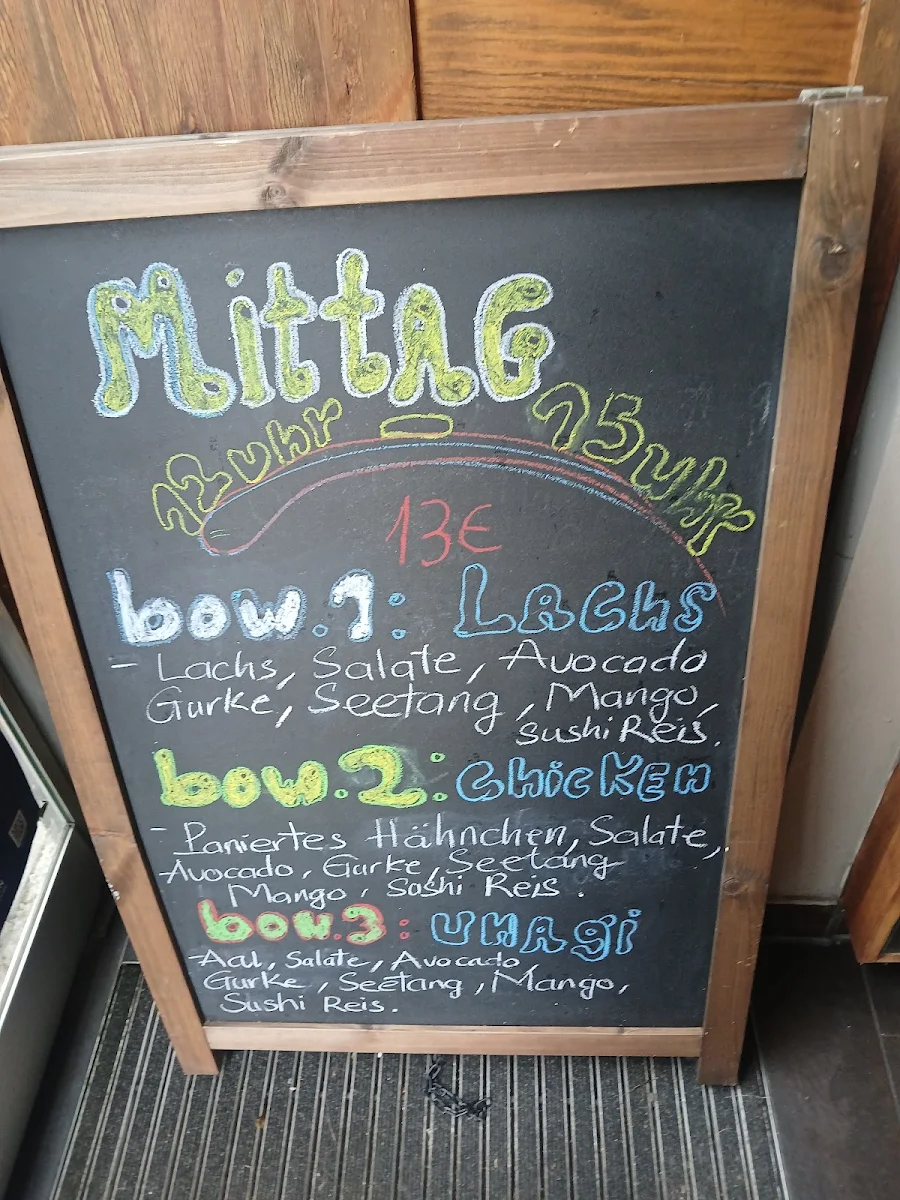 MittAG
12 uhr - 15 uhr
13€
bow.1: LAChS
- Lachs, Salate, Avocado
Gurke, Seetang, Mango,
Sushi Reis.
bow.2: ChicKEn
- Paniertes Hähnchen, Salate,
Avocado, Gurke, Seetang
Mango, Sushi Reis.
bow.3: UNAgi
- Aal, Salate, Avocado
Gurke, Seetang, Mango,
Sushi Reis.